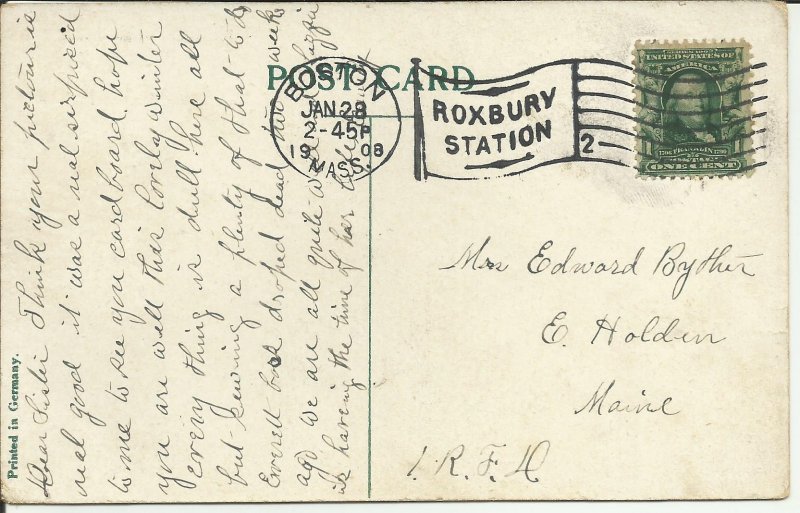 POST CARD
BOSTON
JAN 28
2-45P
1908
MASS.
ROXBURY
STATION
2
SERIES 1902
UNITED STATES OF
AMERICA
1706 FRANKLIN 1790
POSTAGE
1 ONE CENT 1
Mrs Edward Byther
E. Holden
Maine
1. R. F. D
Printed in Germany.
Dear Sister Think your picture is
real good it was a real surprized
to me to see you cardboard hope
you are well this lovely winter
every thing is dull here all
but sewing a plenty of that to do
Everett droped dead week
ago we are all quite well
is haveing the time of her